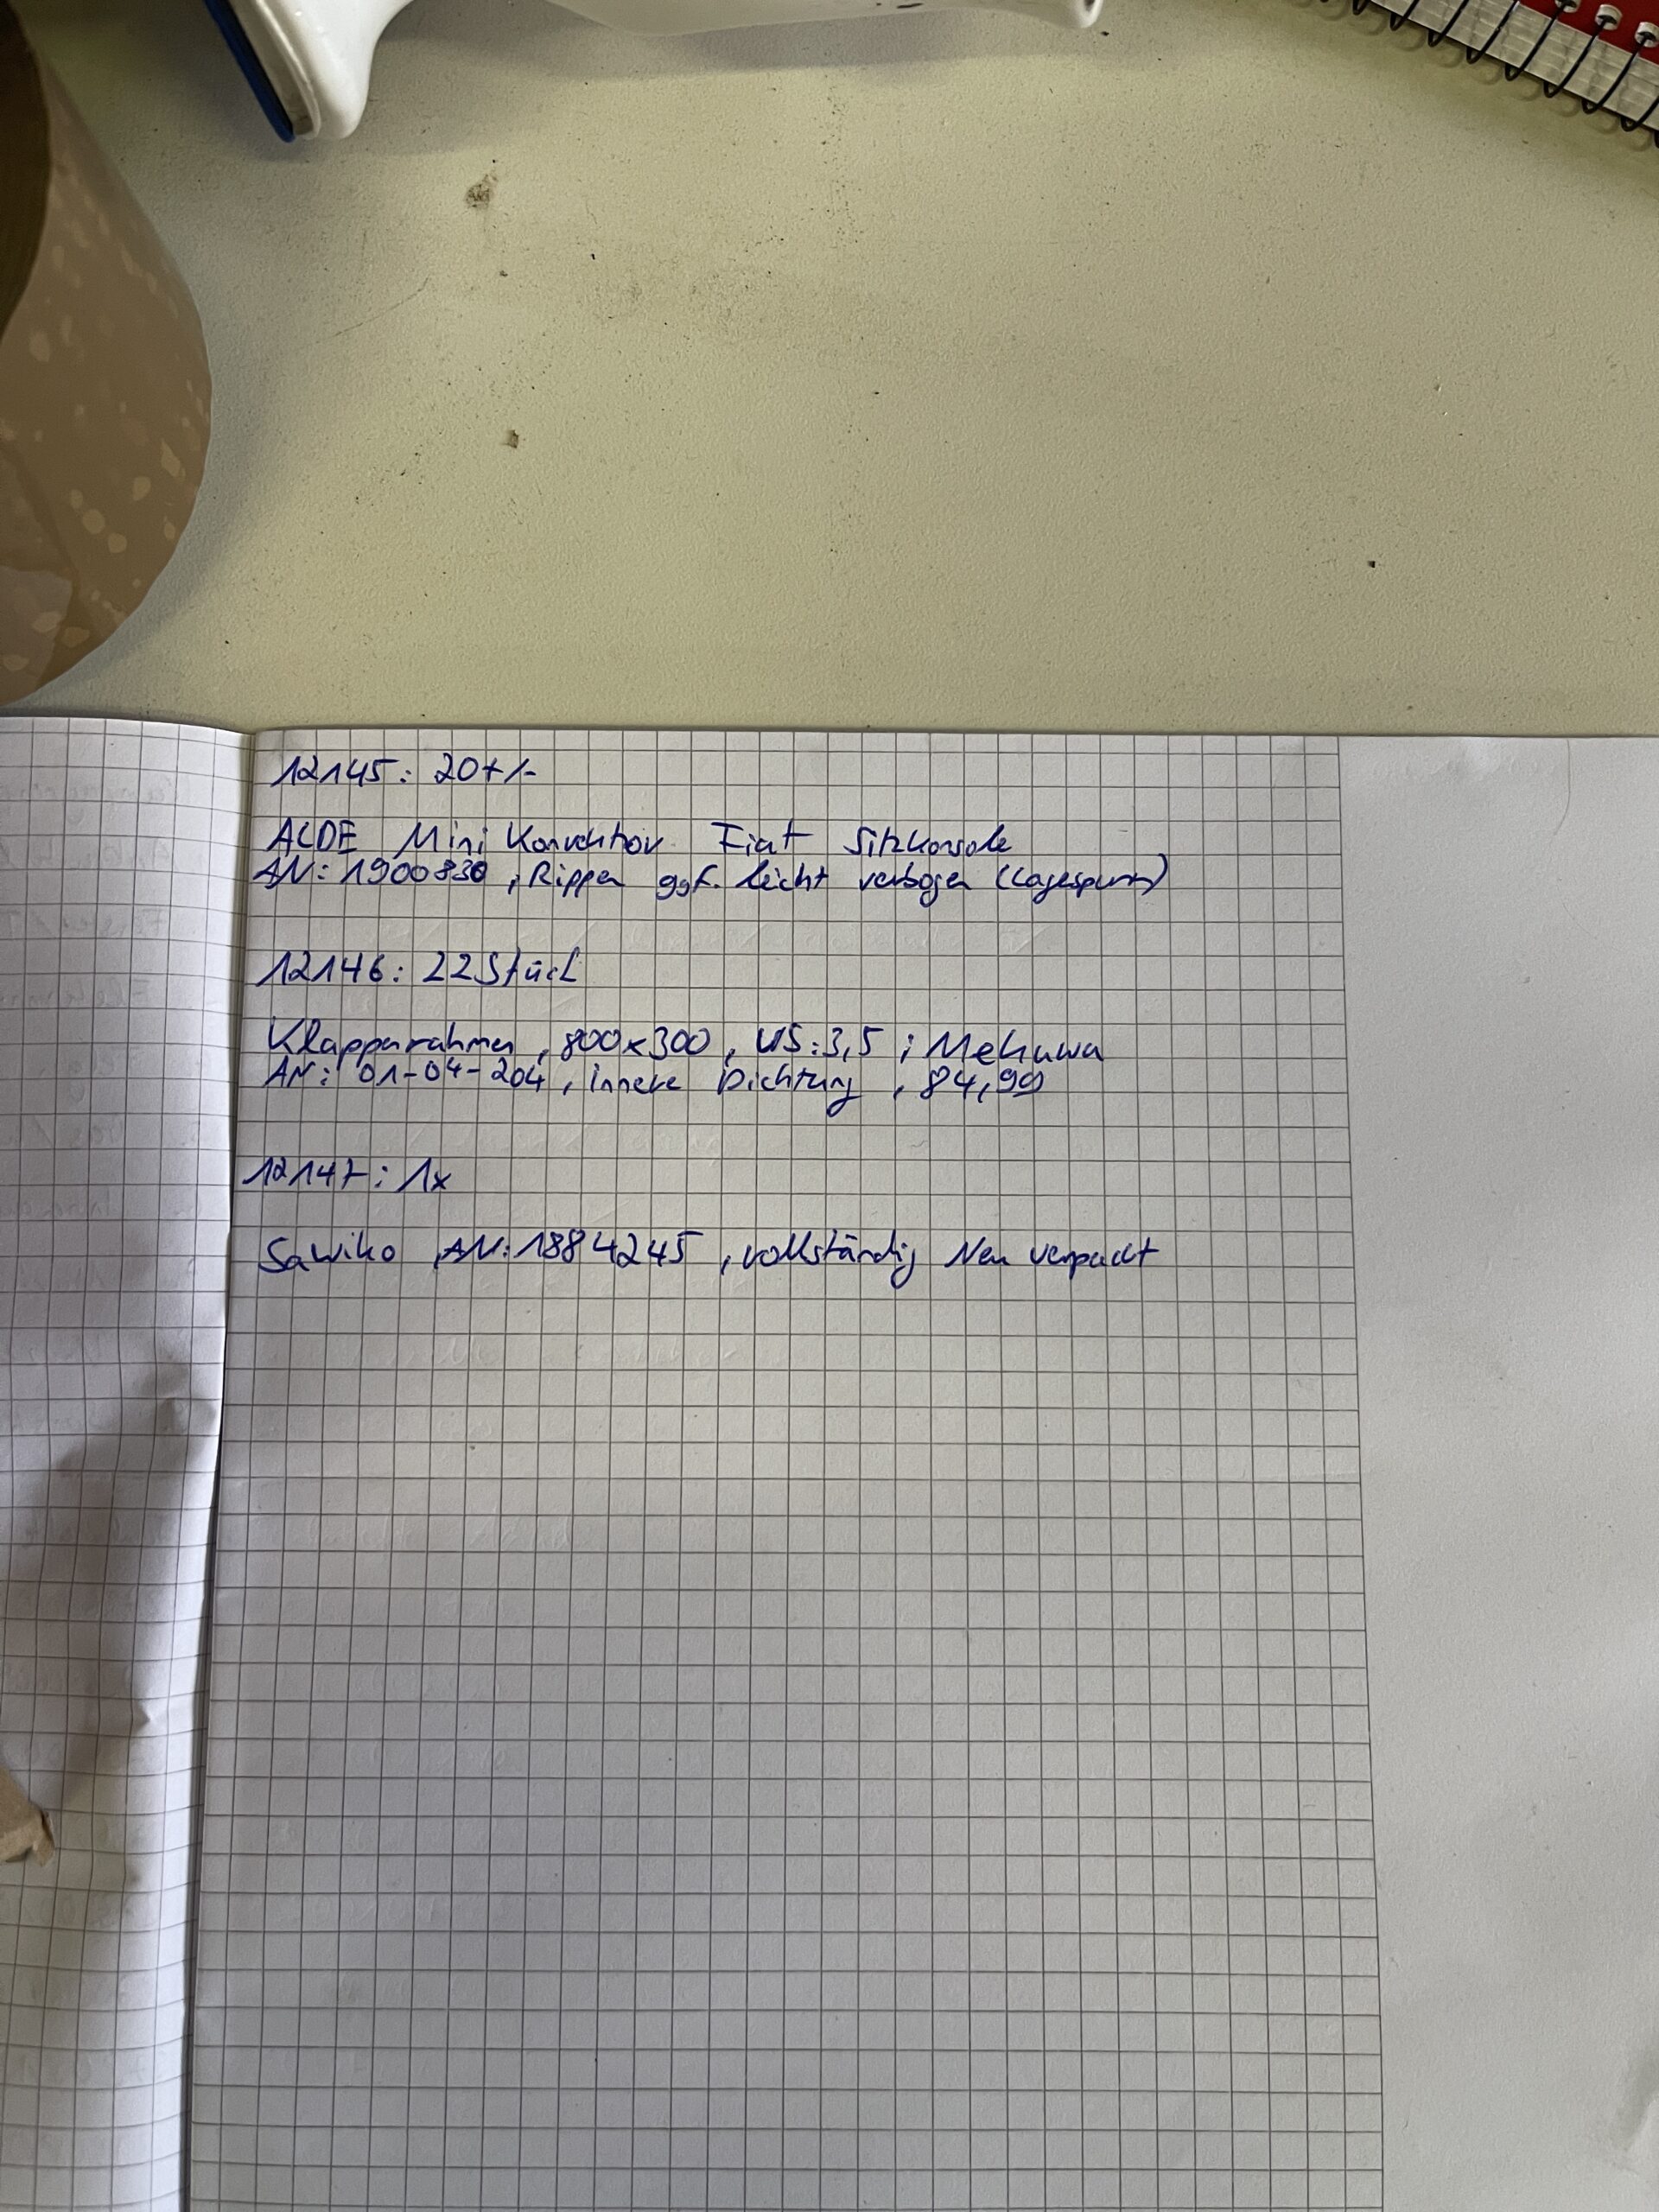 12145: 20+/-
ALDE Mini Konvektor Fiat Sitzkonsole
AN: 1900830, Rippen ggf. leicht verbogen (Lagerspuren)
12146: 22 Stück
Klappenrahmen, 800x300, WS: 3,5; Mekuwa
AN: 01-04-204, innere Dichtung, 84,99
12147: 1x
Sawiko, AN: 1884245, vollständig Neu verpackt